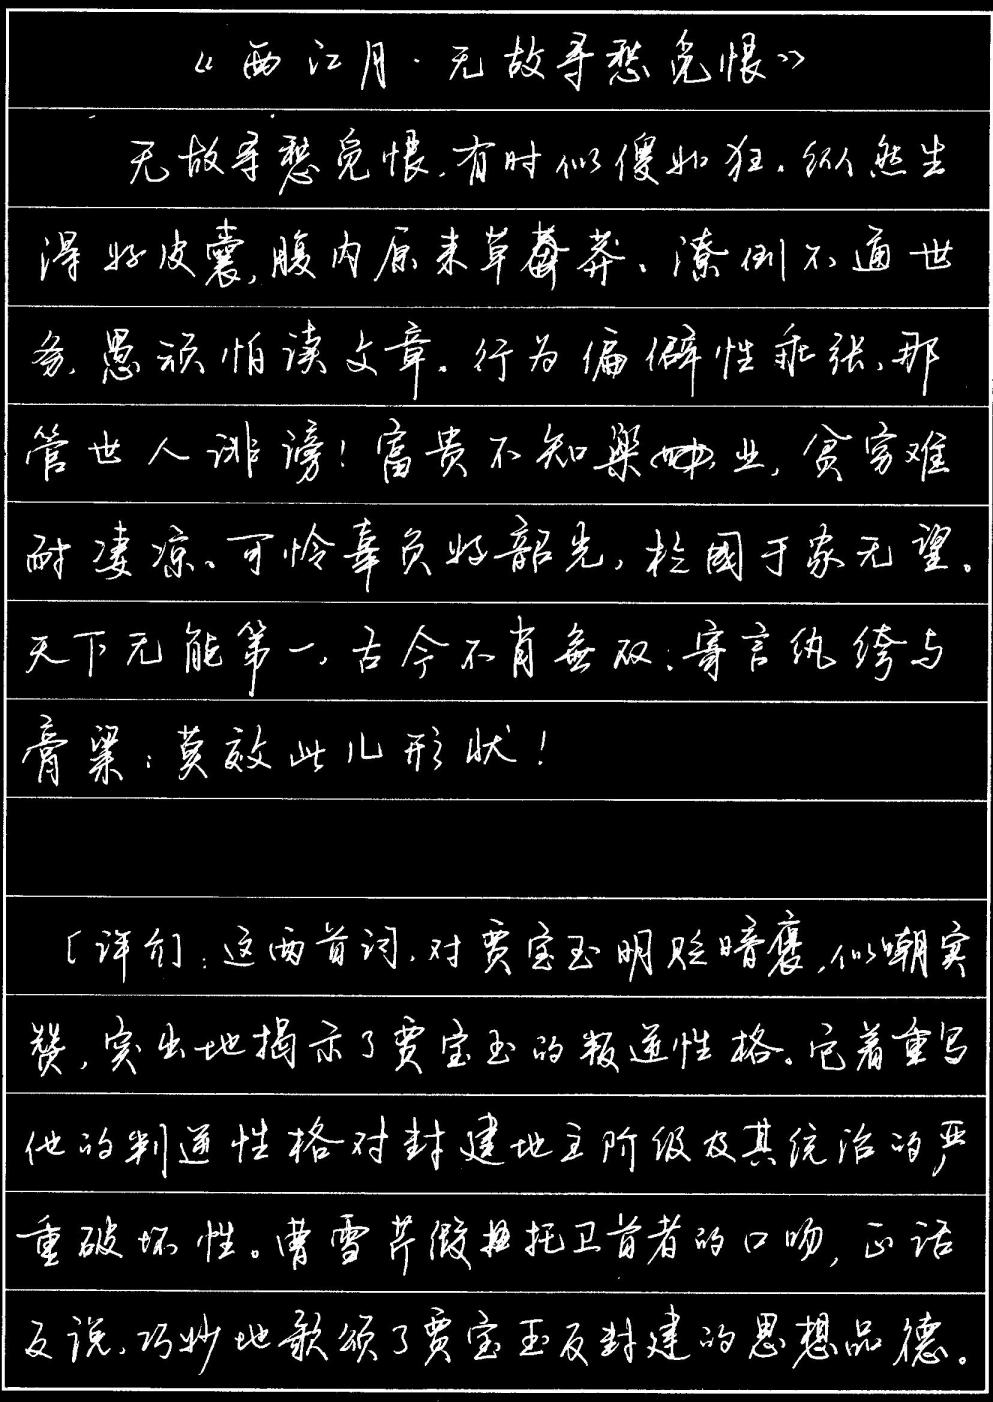 《西江月·无故寻愁觅恨》
无故寻愁觅恨,有时似傻如狂。纵然生
得好皮囊,腹内原来草莽。潦倒不通世
务,愚顽怕读文章。行为偏僻性乖张,那
管世人诽谤!富贵不知樂业,贫穷难
耐凄凉。可怜辜负好韶光,於國于家无望。
天下无能第一,古今不肖無双;寄言纨绔与
膏粱:莫效此儿形状!
[评介]:这两首词,对贾宝玉明贬暗褒,似嘲实
赞,突出地揭示了贾宝玉的叛逆性格。它着重写
他的判逆性格对封建地主阶级及其统治的严
重破坏性。曹雪芹假托卫道者的口吻,正话
反说,巧妙地歌颂了贾宝玉反封建的思想品德。